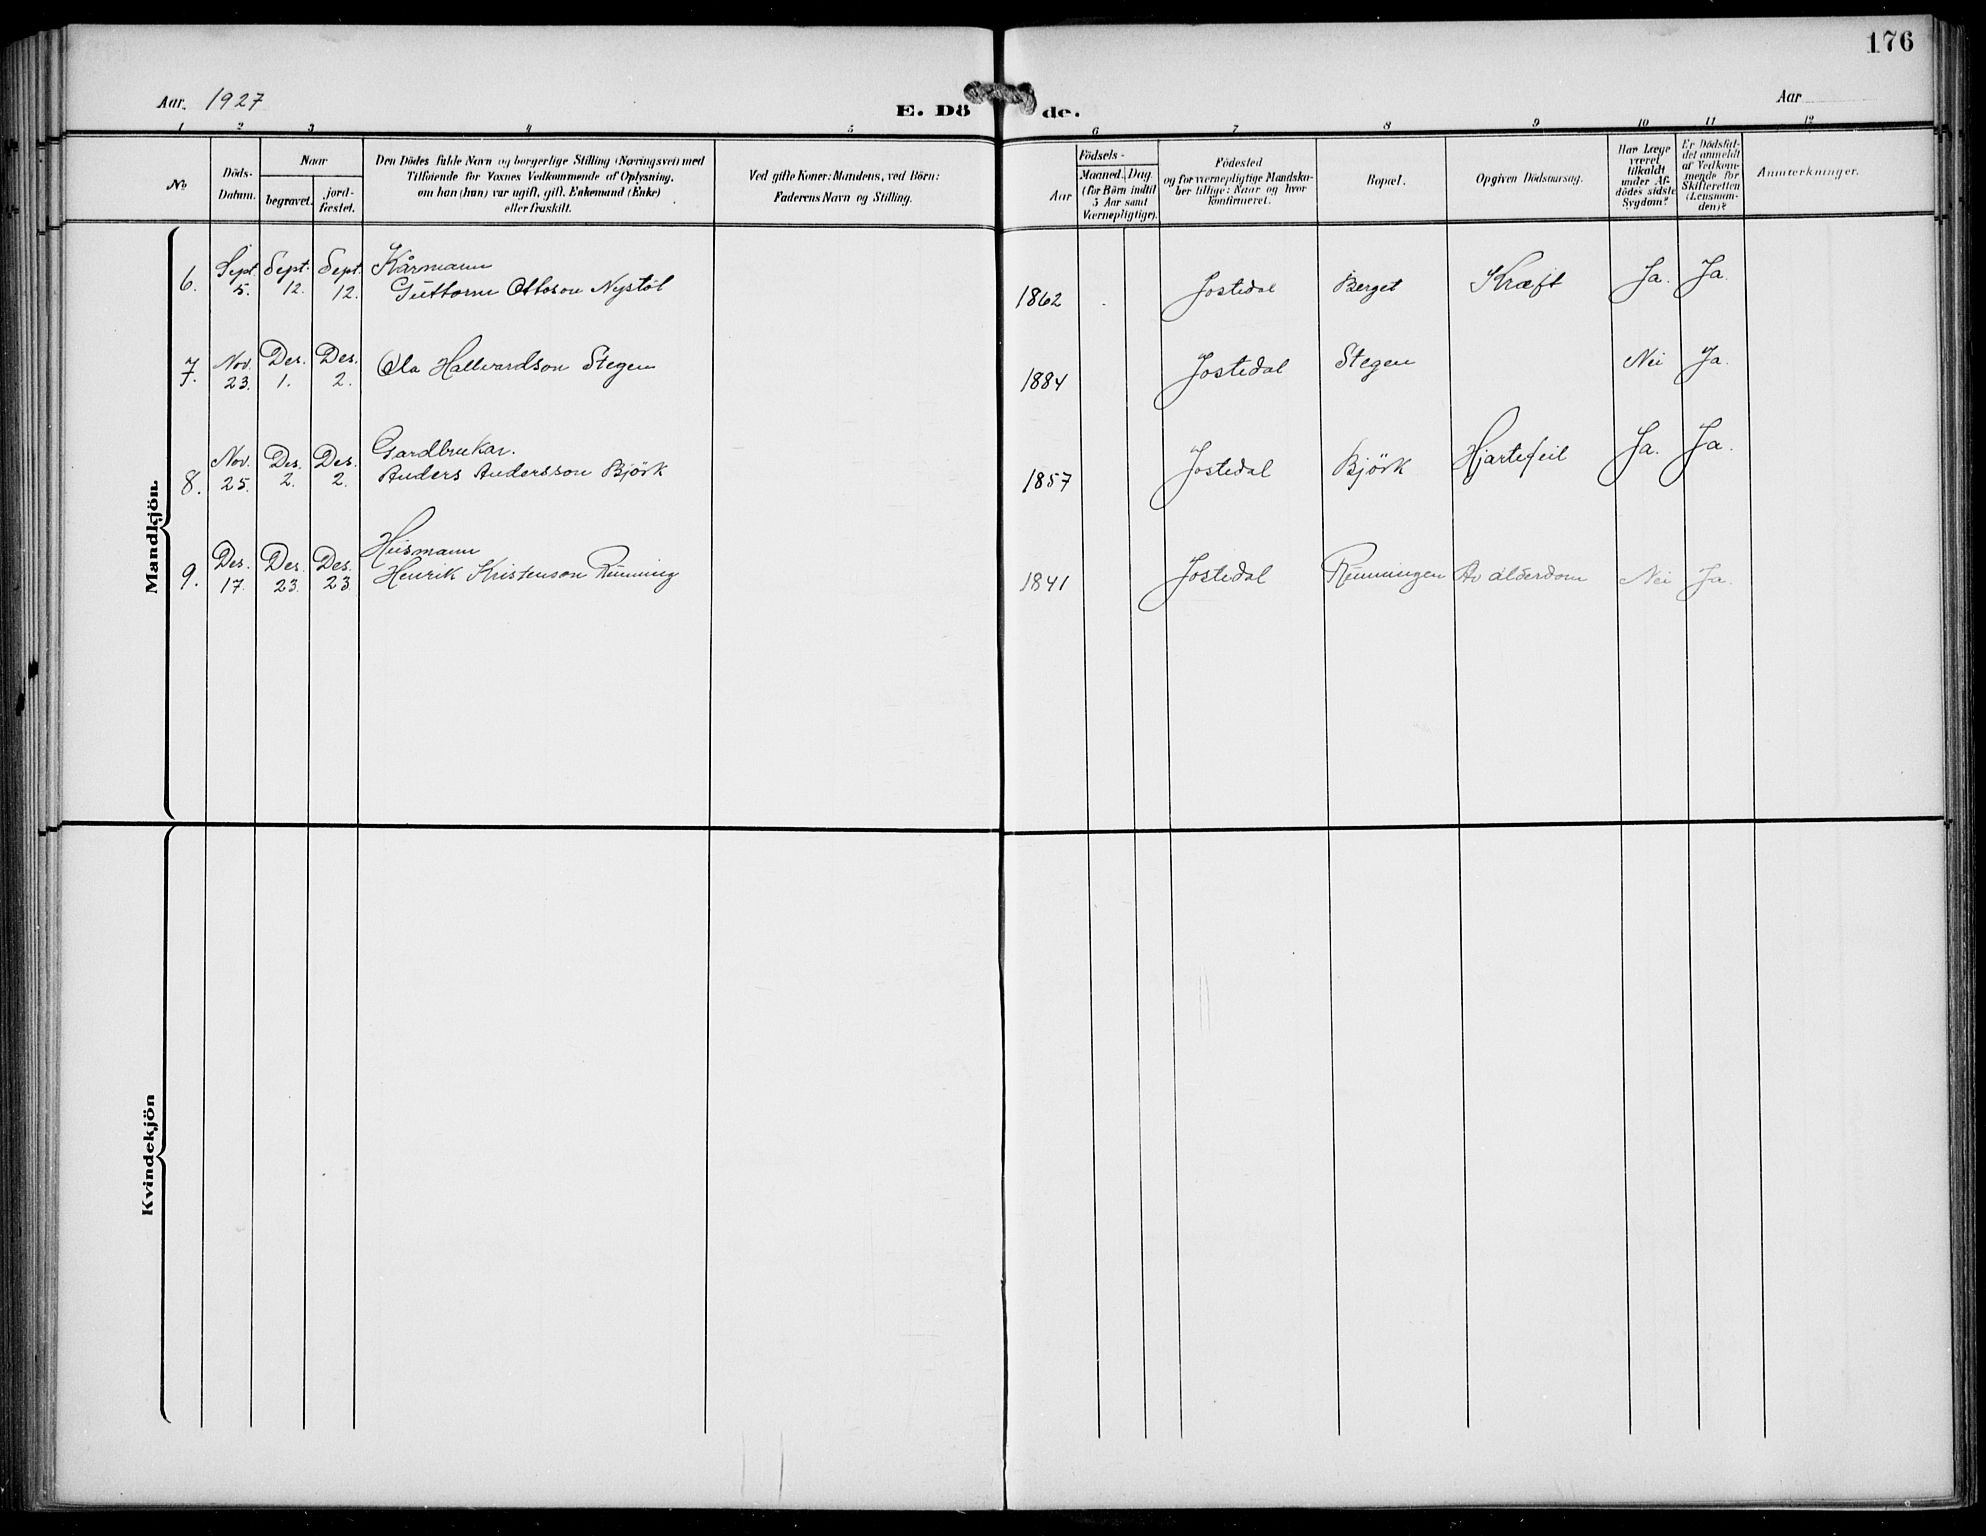 176
Aar. 1927
E. Dö de.
Aar
1 2 3 4 5 6 7 8 9 10 11 12
No
Döds-
Datum.
Naar
begravet.
jord-
fæstet.
Den Dödes fulde Navn og borgerlige Stilling (Næringsvei) med
Tilföiende for Voxnes Vedkommende af Oplysning,
om han (hun) var ugift, gift, Enkemand (Enke)
eller fraskilt.
Ved gifte Koner: Mandens, ved Börn:
Faderens Navn og Stilling.
Födsels-
Aar
Maaned. Dag.
(for Börn indtil
5 Aar samt
Værnepligtige).
Födested
og for værnepligtige Mandska-
ber tillige: Naar og hvor
konfirmeret.
Bopæl.
Opgiven Dödsaarsag.
Har Læge
været
tilkaldt
under Af-
dödes sidste
Sygdom?
Er Dödsfal-
det anmeldt
af Vedkom-
mende for
Skifteretten
(Lensman-
den)?
Anmærkninger.
Mandkjön.
6. Sept. 5. Sept. 12. Sept. 12. Kårmann
Guttorm Ottoson Nystöl 1862 Jostedal Berget Kræft Ja. Ja.
7. Nov. 23. Des. 1. Des. 2. Ola Hallvardson Stegen 1884 Jostedal Stegen Nei Ja.
8. Nov. 25. Des. 2. Des. 2. Gardbrukar.
Anders Andersson Björk 1857 Jostedal Björk Hjartefeil Ja. Ja.
9. Des. 17. Des. 23. Des. 23. Husmann
Henrik Kristenson Running 1841 Jostedal Runningen Av alderdom Nei Ja.
Kvindekjön